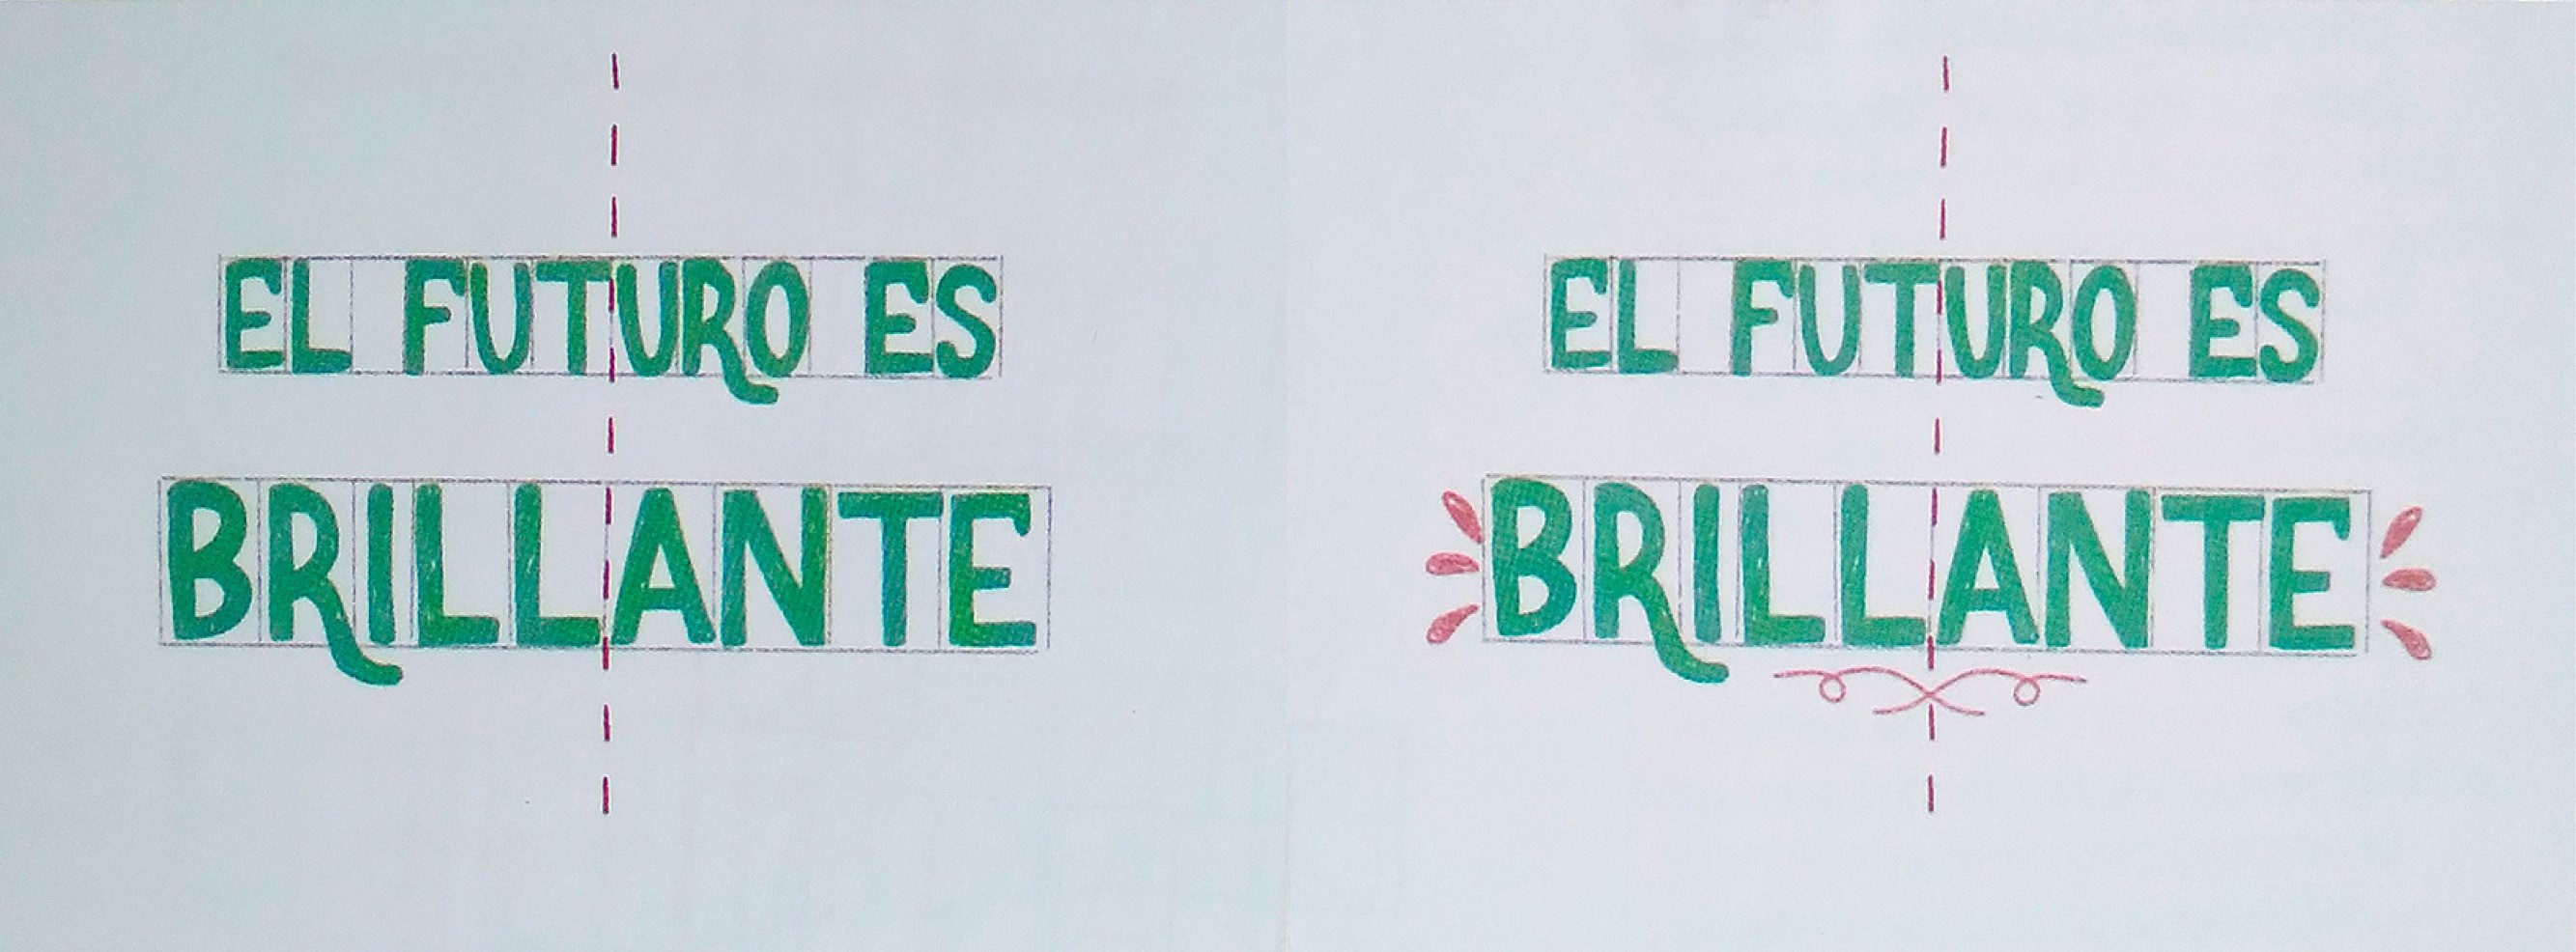 EL FUTURO ES
BRILLANTE
EL FUTURO ES
BRILLANTE